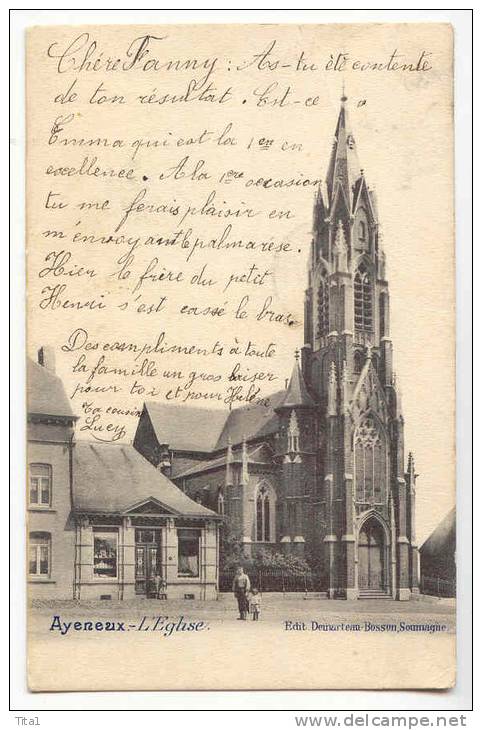 Chére Fanny: As-tu été contente
de ton résultat. Est-ce
Emma qui est la 1en en
excellence. A la 1ere occasion
tu me ferais plaisir en
m'envoyant le palmarése.
Hier le frère du petit
Henri s'est cassé le bras.
Des compliments à toute
la famille un gros baiser
pour toi et pour Hélène
Ta cousine
Lucy
Ayeneux.-L'Eglise.
Edit. Demarteau-Bosson, Soumagne.
Tital
www.delcampe.net